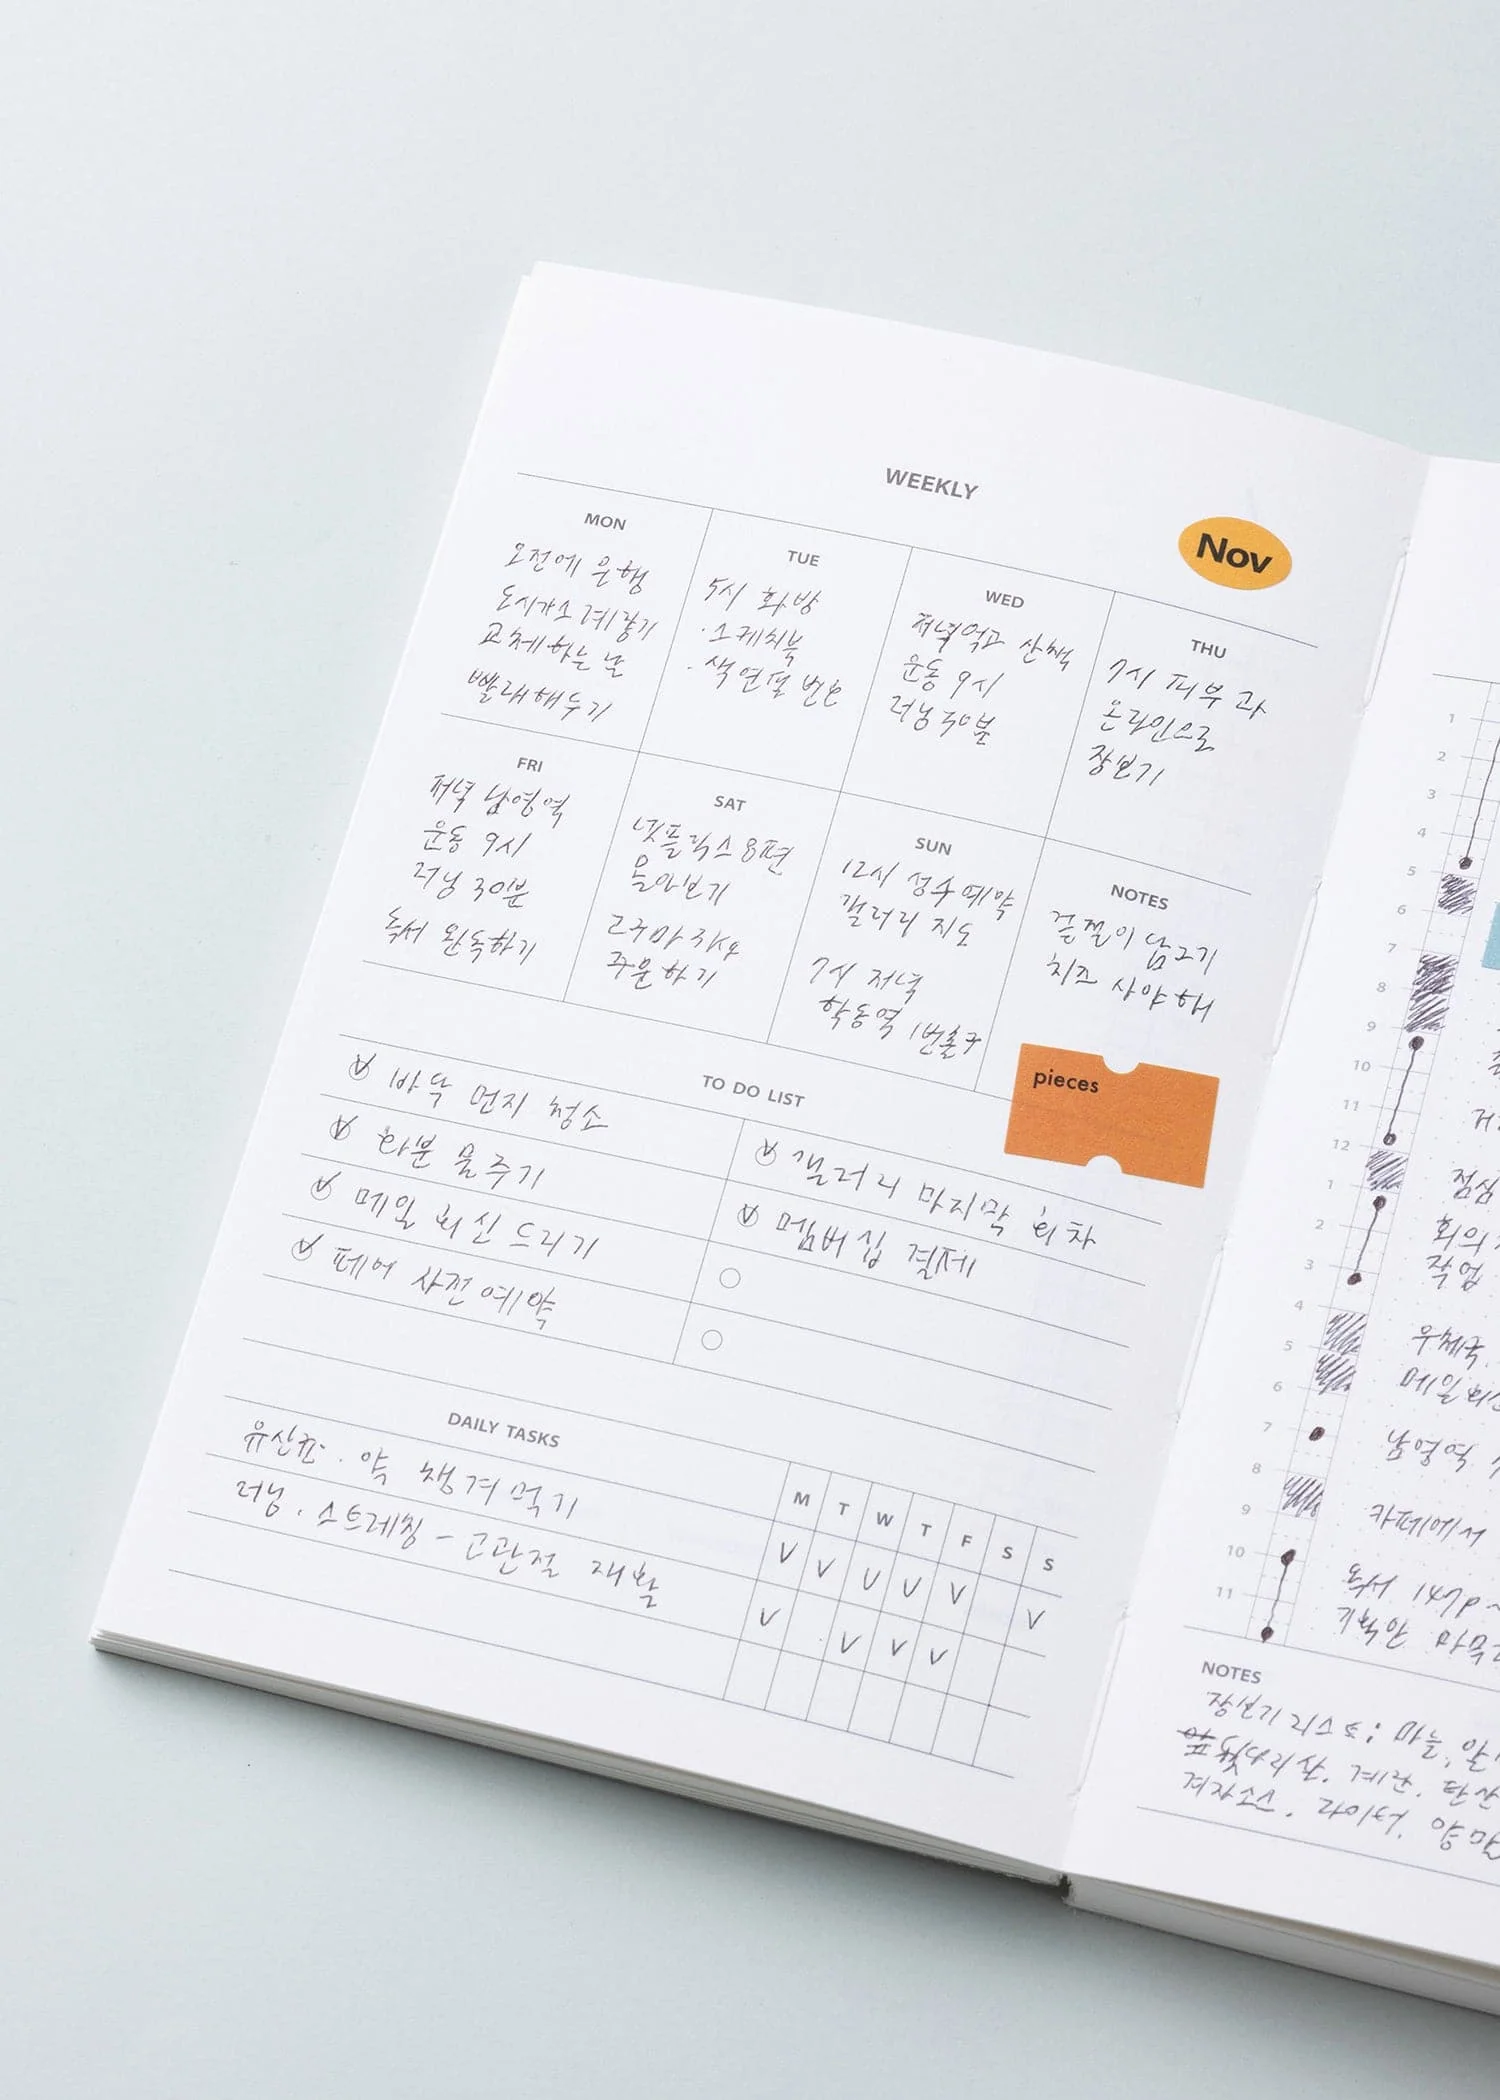 WEEKLY
Nov
MON
오전에 은행
도시가스 계량기
교체하는 날
빨래해두기
TUE
5시 화방
· 스케치북
· 색연필 번호
WED
저녁먹고 산책
운동 9시
러닝 30분
THU
7시 피부과
온라인으로
장보기
FRI
저녁 남영역
운동 9시
러닝 30분
독서 완독하기
SAT
넷플릭스 8편
몰아보기
고구마
주문하기
SUN
12시 성수 예약
갤러리 지도
7시 저녁
학동역 1번출구
NOTES
끈끈이
치즈 사야해
pieces
TO DO LIST
바닥 먼지 청소
화분 물주기
메일 회신 드리기
페어 사전예약
갤러리 마지막 회차
멤버십 결제
DAILY TASKS
M T W T F S S
유산균 · 약 챙겨먹기
V V V V V V
러닝 · 스트레칭 - 고관절 재활
V V V V
1
2
3
4
5
6
7
8
9
10
11
12
1
2
3
4
5
6
7
8
9
10
11
점심
회의
작업
우체국
메일회신
남영역
카페에서
독서 1시간
NOTES
장보기 리스트: 마늘,
계란. 탄산
겨자소스.